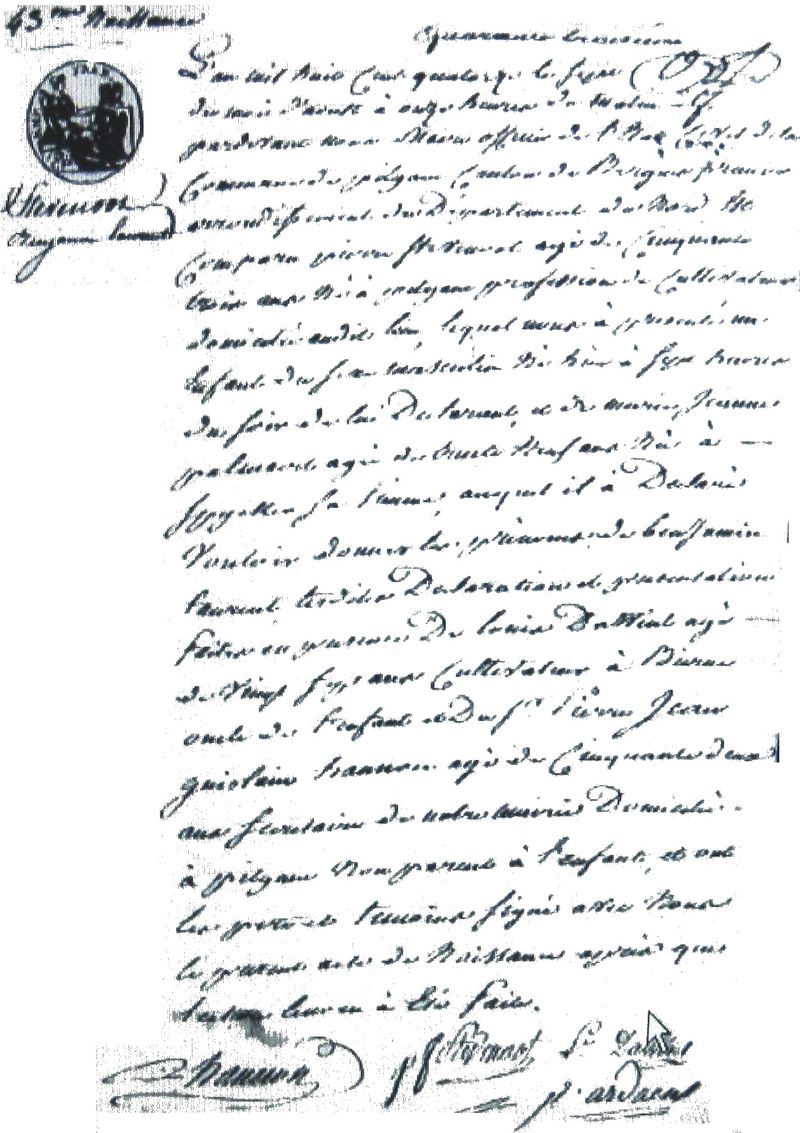 43me Naissance
quarante troisieme
L'an mil huit Cent quatorze le sept
du mois d'aout à onze heures du matin
pardevant nous Maire officier de l'Etat Civil de la
Commune de pitgam Canton de Bergues france
arrondissement du Département du Nord
Benjamin Laurent
Comparu pierre agé de Cinquante
trois ans Né à pitgam profession de Cultivateur
domicilié audit lieu lequel nous à presenté un
Enfant du sexe masculin Né hier à sept heures
du soir de lui Declarant, et de marie Jeanne
agé de trente Neuf ans Née à —
Spycker sa femme, auquel il à Declaré
Vouloir donner les prénoms de benjamin
laurent lesdites Declaration et presentation
faites en presence De louis agé —
de Vingt sept ans Cultivateur à Bierne
oncle de l'enfant et Du Sr Pierre Jean
guislain hannon agé de Cinquante deux
ans secretaire de notre mairie Domicilié
à pitgam Non parent à l'enfant, et ont
les pere et temoins signé avec Nous
le present acte de Naissance après que
lecture leur en à Eté faite.
hannon